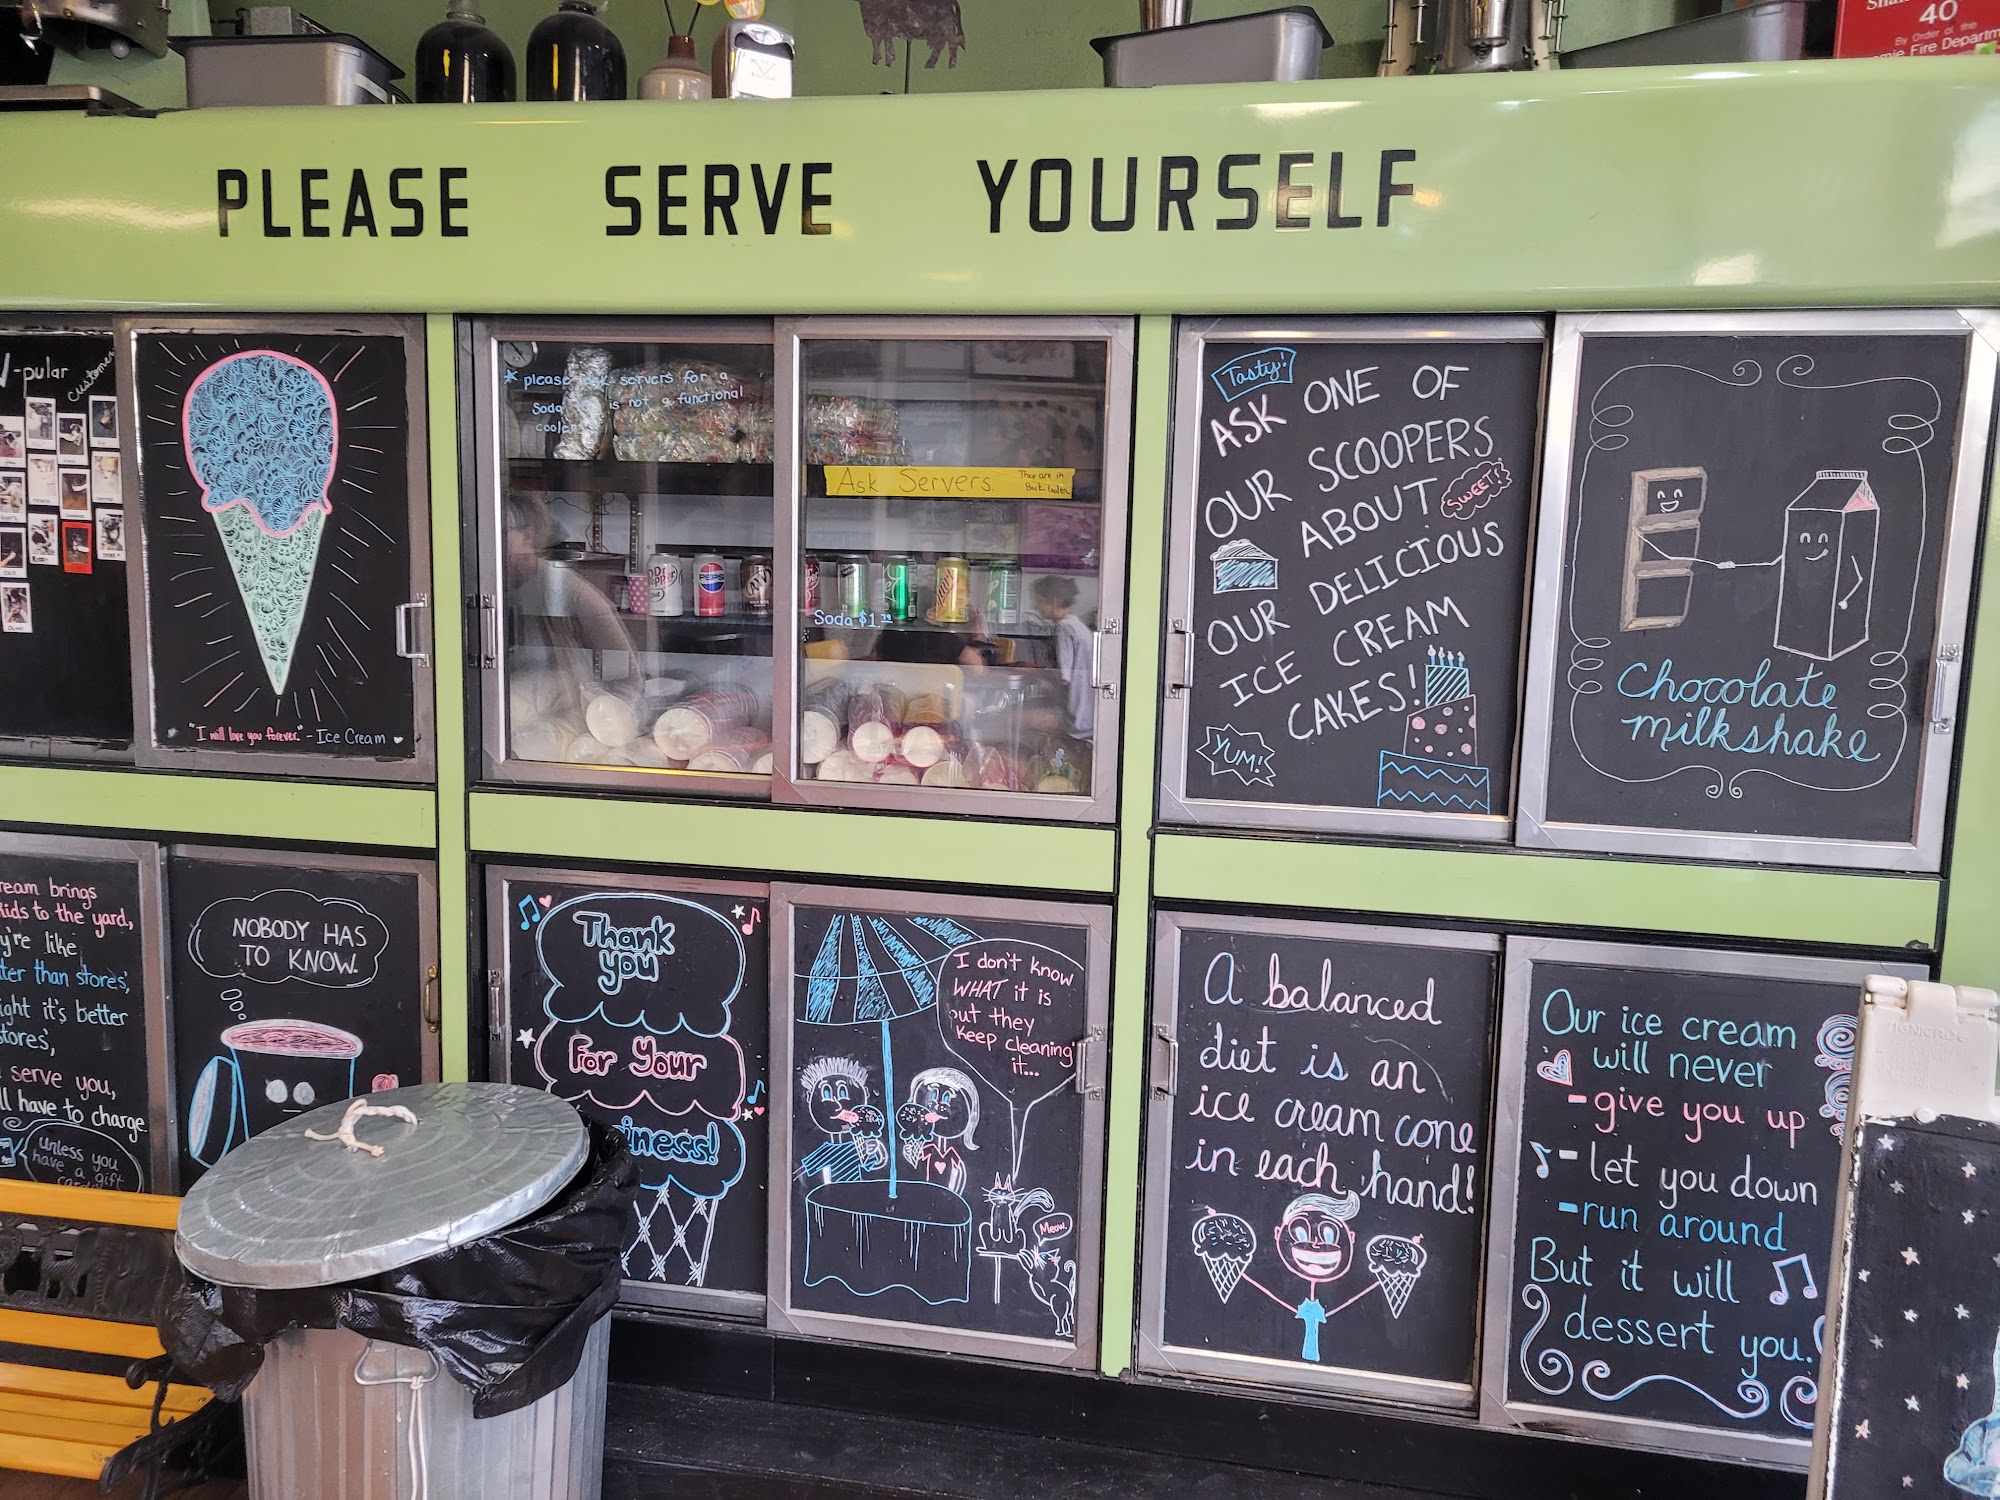 40
By Order of the
Fire Departm
PLEASE SERVE YOURSELF
-pular
customers
"I will love you forever." - Ice Cream
* please ask servers for a
Soda is not a functional
cooler
Ask Servers. They are in
Back Cooler
DR Pepper
PEPSI
A&W
Soda $1.29
Tasty!
ASK ONE OF
OUR SCOOPERS
ABOUT SWEET!
OUR DELICIOUS
ICE CREAM
CAKES!
YUM!
Chocolate
milkshake
ream brings
kids to the yard,
y're like
ter than stores',
ight it's better
stores',
serve you,
ll have to charge.
Unless you
have a gift
NOBODY HAS
TO KNOW.
Thank
you
For Your
iness!
I don't know
WHAT it is
but they
keep cleaning
it...
Meow.
A balanced
diet is an
ice cream cone
in each hand!
Our ice cream
will never
- give you up
- let you down
- run around
But it will
dessert you.